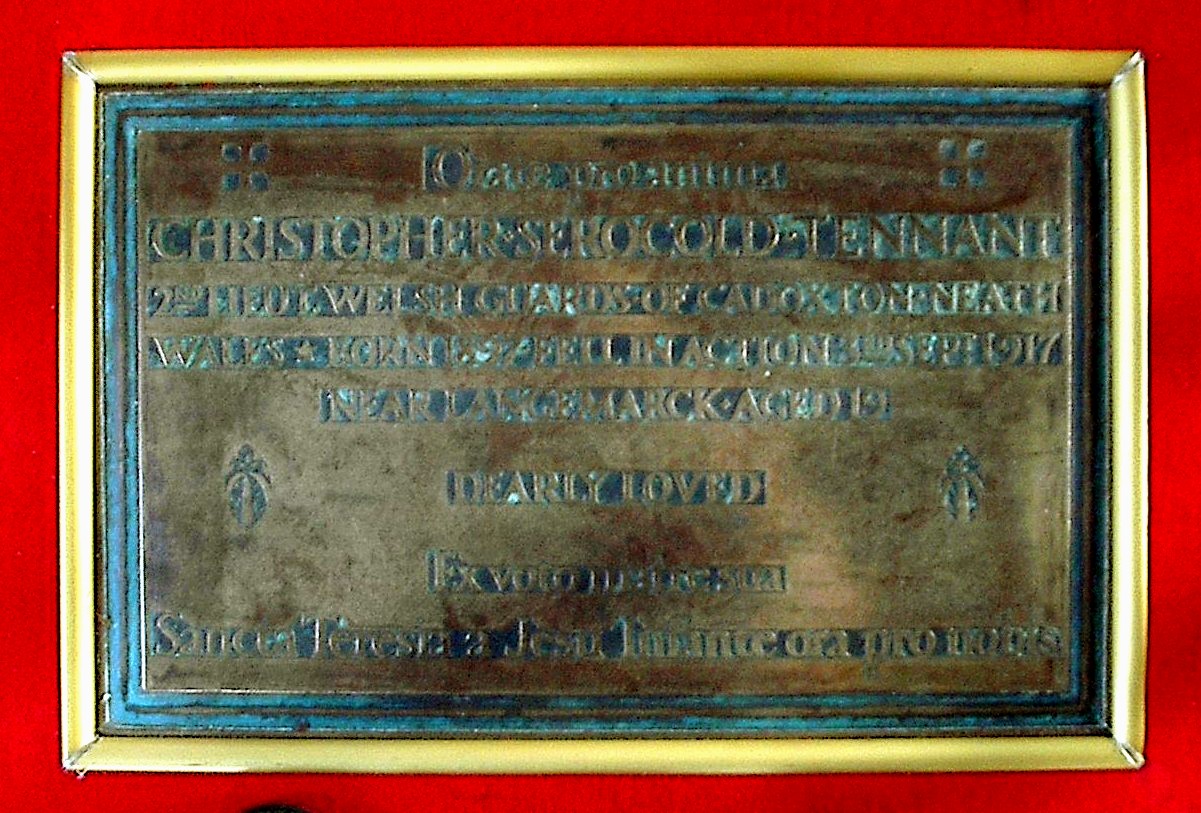 Orate pro anima
CHRISTOPHER·SEROCOLD·TENNANT
2ND LIEUT. WELSH GUARDS·OF CADOXTON·NEATH
WALES ★ BORN 1897 FELL IN ACTION 3RD SEPT 1917
NEAR LANGEMARCK·AGED 19
DEARLY LOVED
Ex voto matre sua
Sancta Teresia a Jesu Infante ora pro nobis